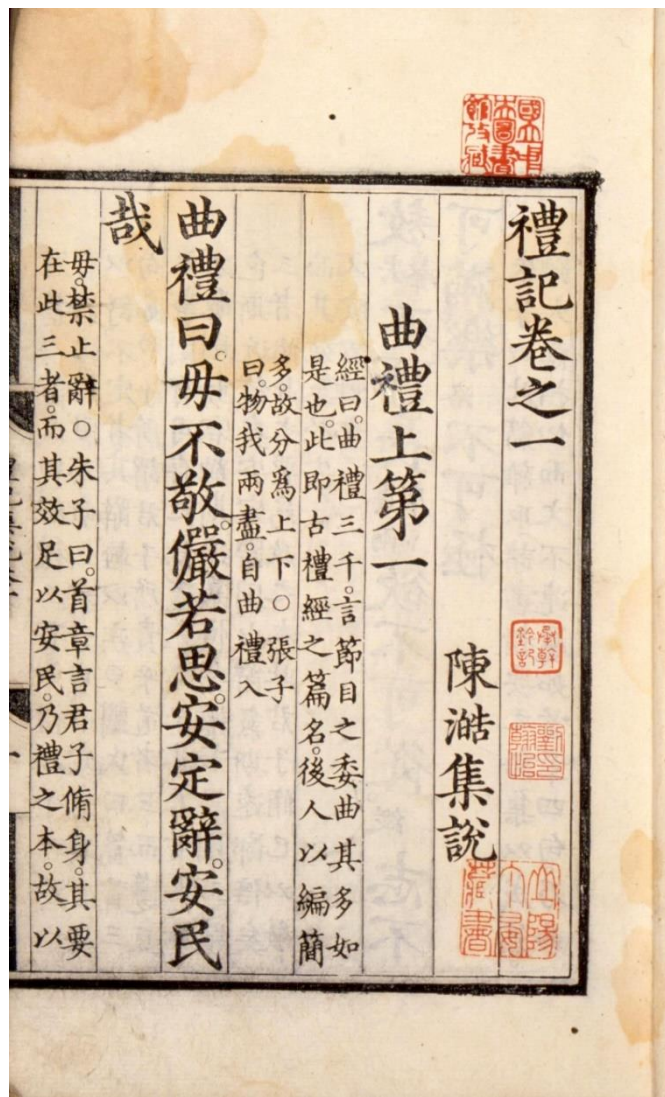 國立中
央圖書
館收藏
禮記卷之一
陳澔集說
曲禮上第一
經曰。曲禮三千。言節目之委曲其多如
是也。此即古禮經之篇名。後人以編簡
多。故分爲上下○張子
曰。物我兩盡。自曲禮入
曲禮曰。毋不敬。儼若思。安定辭。安民
哉
毋。禁止辭○朱子曰。首章言君子脩身。其要
在此三者。而其效足以安民。乃禮之本。故以
承幹
鈐記
山陽
丁晏
藏書